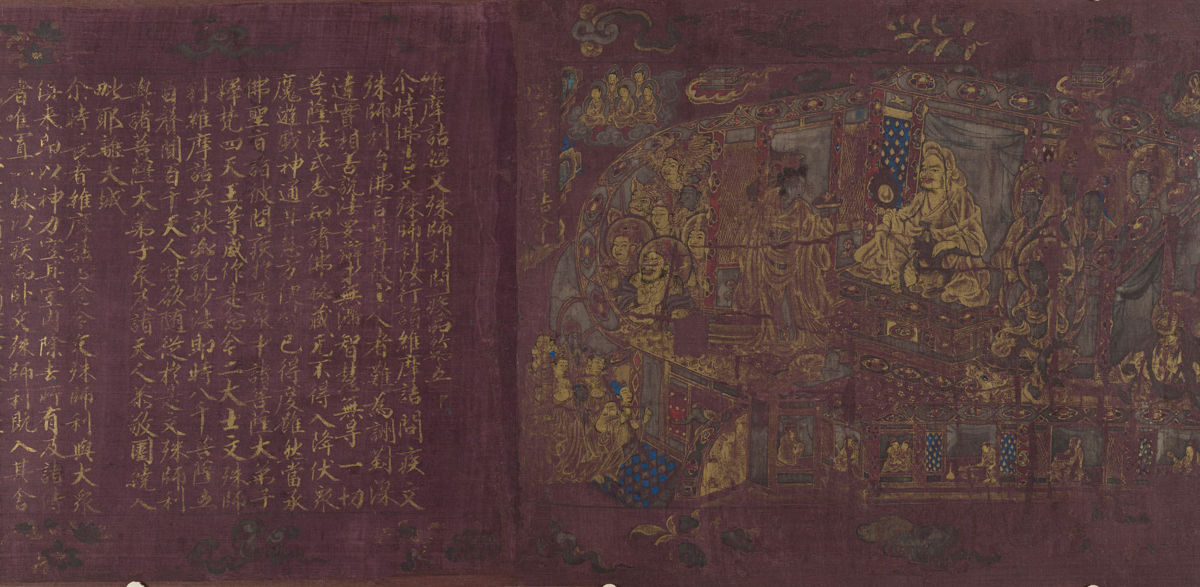 維摩詰經文殊師利問疾品第五
尒時佛告文殊師利汝行詣維摩詰問疾文
殊師利白佛言世尊彼上人者難為詶對深
達實相善說法要辯才無滯智慧無㝵一切
菩薩法式悉知諸佛秘藏无不得入降伏衆
魔遊戲神通其慧方便皆已得度雖然當承
佛聖旨詣彼問疾於是衆中諸菩薩大弟子
釋梵四天王等咸作是念今二大士文殊師
利維摩詰共談必說妙法即時八千菩薩五
百聲聞百千天人皆欲隨從於是文殊師利
與諸菩薩大弟子衆及諸天人恭敬圍繞入
毗耶離大城
尒時長者維摩詰心念今文殊師利與大衆
俱來即以神力空其室內除去所有及諸侍
者唯置一牀以疾而臥文殊師利既入其舍